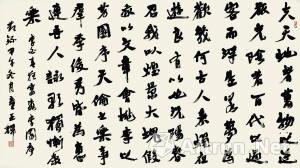 夫天地者萬物之逆
旅光陰者百代之過
客而浮生若夢為
歡幾何古人秉燭夜
遊良有以也況陽春
召我以煙景大塊假
我以文章會桃李之芳
園序天倫之樂事
羣季俊秀皆為惠
連吾人詠歌獨慚康
樂
李白春夜宴桃李園序
甲午冬月